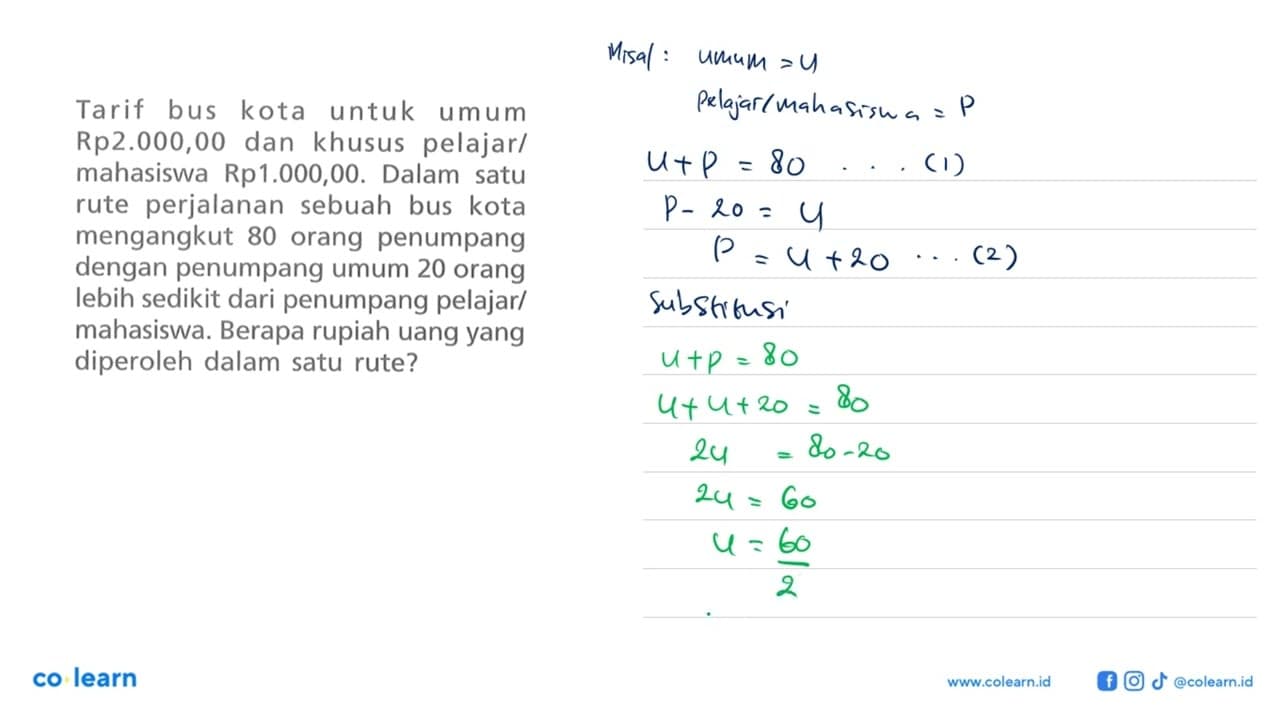 Tarif bus kota untuk umum
Rp2.000,00 dan khusus pelajar/
mahasiswa Rp1.000,00. Dalam satu
rute perjalanan sebuah bus kota
mengangkut 80 orang penumpang
dengan penumpang umum 20 orang
lebih sedikit dari penumpang pelajar/
mahasiswa. Berapa rupiah uang yang
diperoleh dalam satu rute?
Misal : umum = u
Pelajar/mahasiswa = P
u + p = 80 . . . (1)
P - 20 = u
P = u + 20 ... (2)
Substitusi
u + p = 80
u + u + 20 = 80
2u = 80 - 20
2u = 60
u = 60
2
co learn
www.colearn.id
@colearn.id